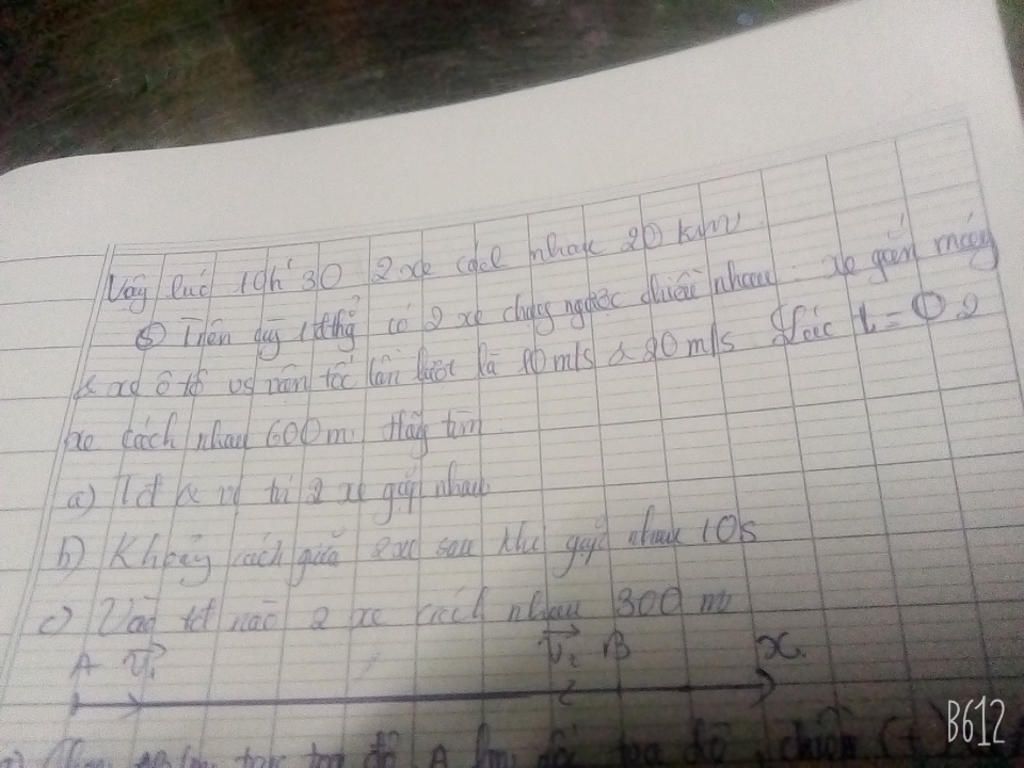 Vậy lúc 10h 30 2 xe cách nhau 20 km
⑤ Trên đg thẳg có 2 xe chạy ngược chiều nhau. xe gắn máy
& xe ô tô vs vận tốc lần lượt là 10m/s & 20m/s Lúc t = 0 2
xe cách nhau 600m. Hãy tìm
a) tđ & vị trí 2 xe gặp nhau
b) Khoảng cách giữa 2 xe sau khi gặp nhau 10s
c) Vào tđ nào 2 xe cách nhau 300 m
A v₁ v₂ B x
A làm tọa độ, chiều (+)
B612